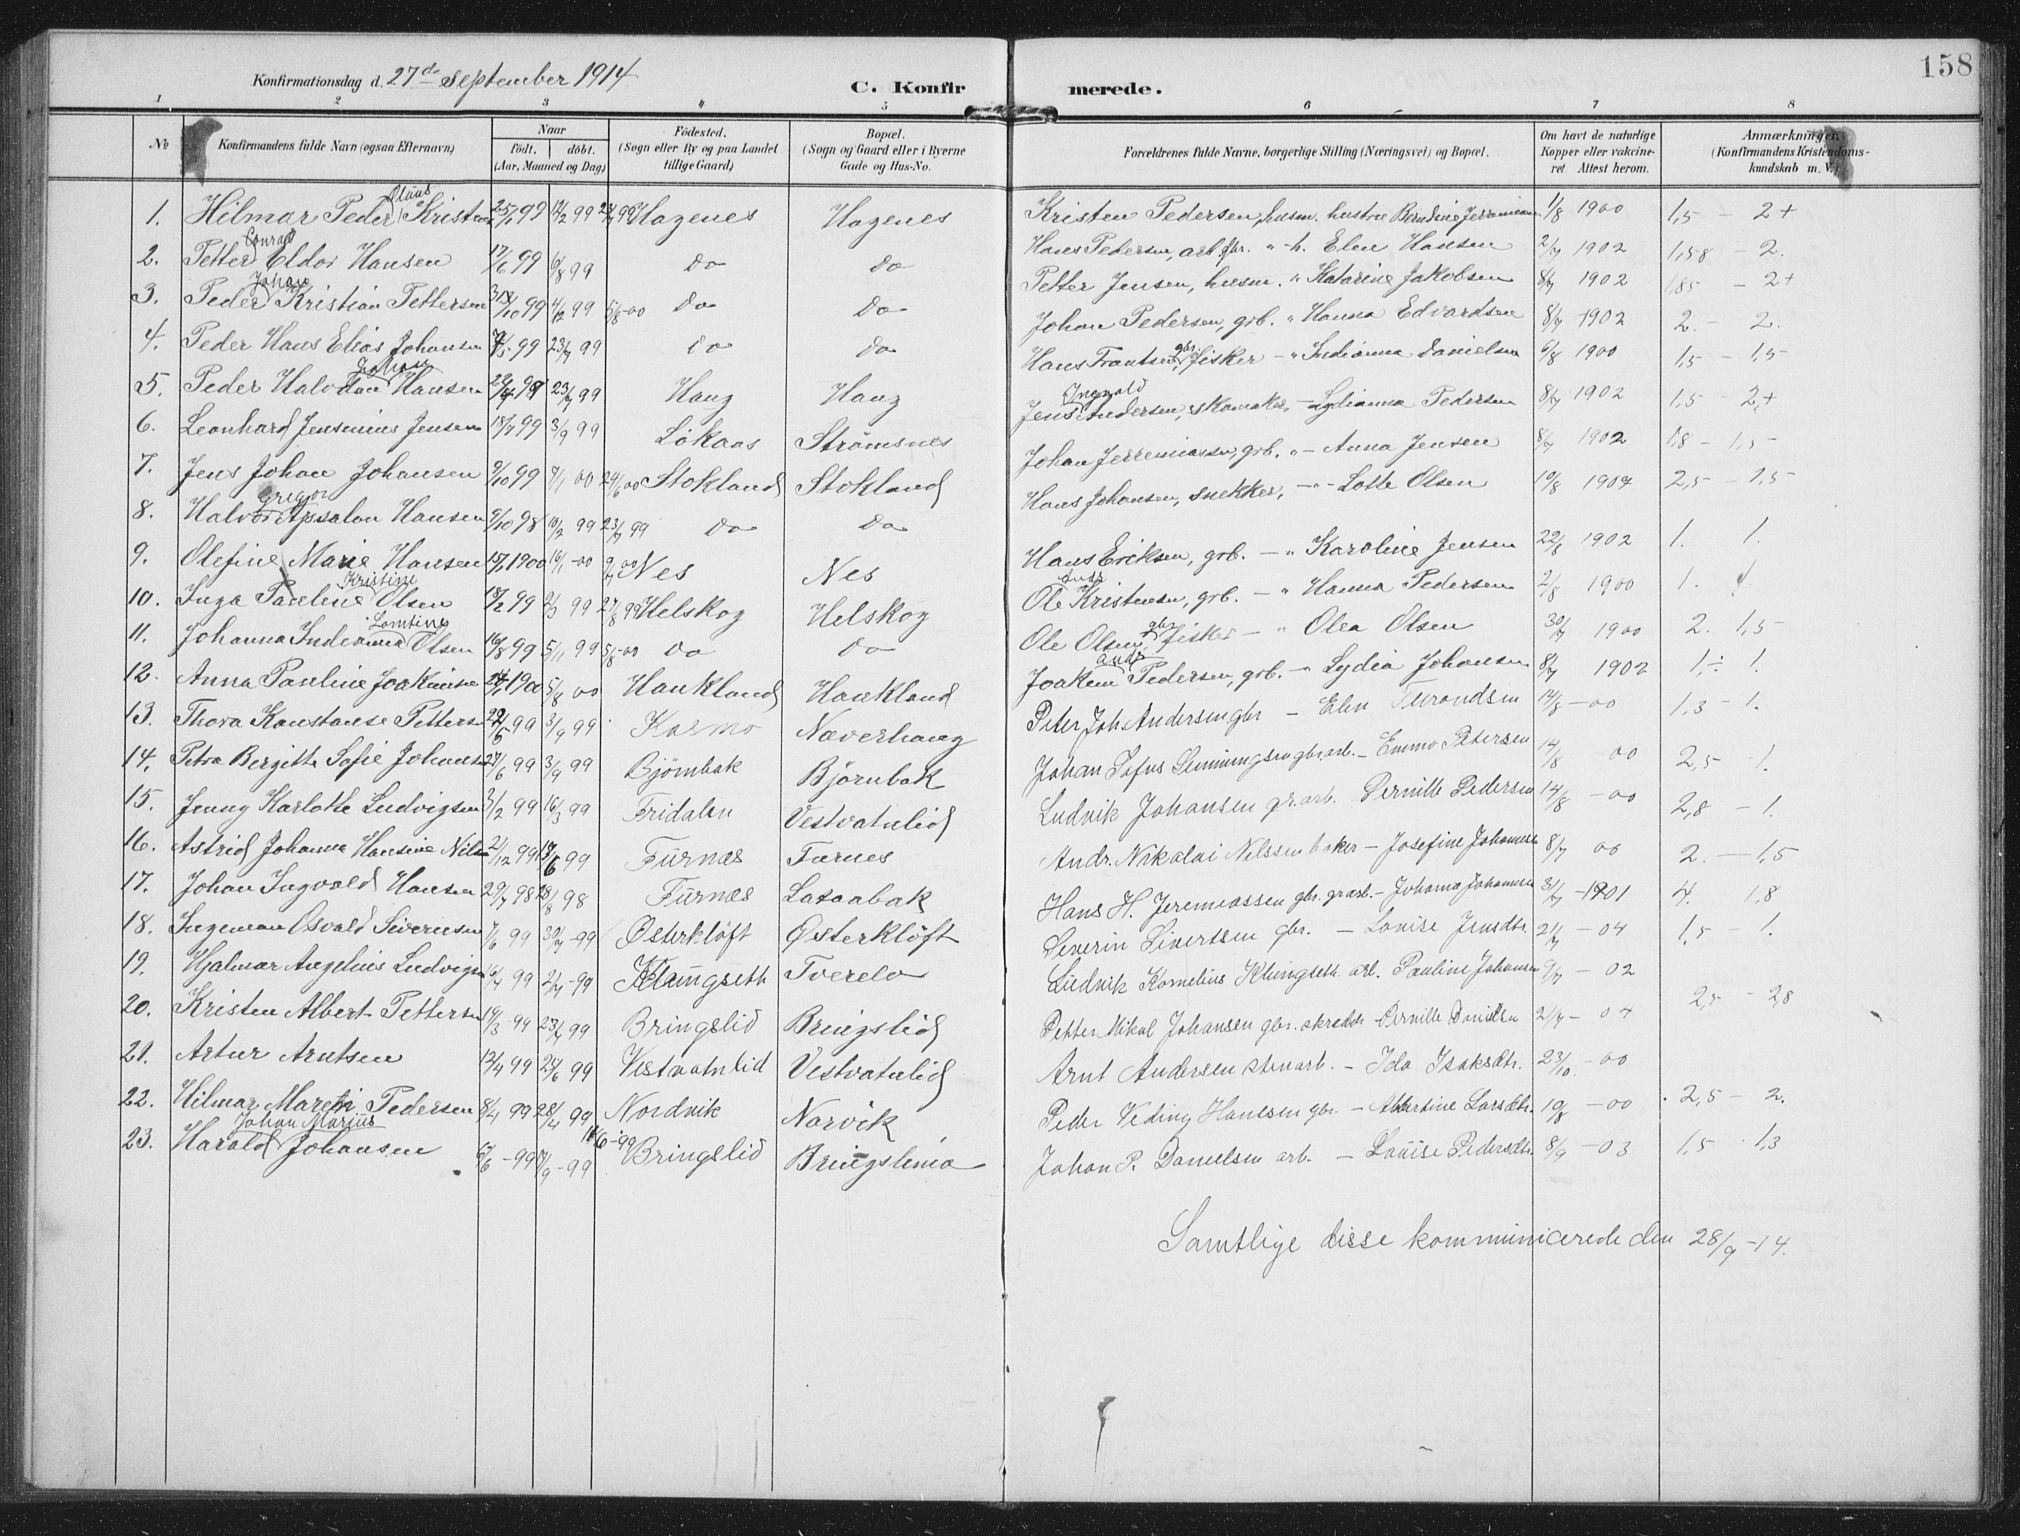 158
Konfirmationsdag d. 27de September 1914
C. Konfir merede.
1 2 3 4 5 6 7 8
No
Konfirmandens fulde Navn (ogsaa Efternavn)
Naar
født. døbt.
(Aar, Maaned og Dag)
Fødested.
(Sogn eller By og paa Landet tillige Gaard)
Bopæl.
(Sogn og Gaard eller i Byerne Gade og Hus-No.
Forældrenes fulde Navne, borgerlige Stilling (Næringsvei) og Bopæl.
Om havt de naturlige Kopper eller vakcineret Attest herom.
Anmærkninger
(Konfirmandens Kristendomskundskab m. V.)
1. Hilmar Peder Olaus Kristen 99 12/2 99 99 Hagenes Hagenes Kristen Pedersen, husm. hustru Berndine Jerremiasen 1/8 1900 1,5 – 2+
2. Petter Conrad Eldor Hansen 17/6 99 6/8 99 do do Hans Pedersen, arb gbr. " h. Elen Hansen 2/7 1902 1,58 – 2.
3. Peder Johan Kristian Pettersen /10 99 4/12 99 5/8-00 do do Petter Jensen, husm. " Katarine Jakobsen 8/7 1902 1,85 – 2+
4. Peder Hans Elias Johansen 99 23/7 99 do do Johan Pedersen, grb. " Hanna Edvardsen 8/7 1902 2. – 2.
5. Peder Halvdan Johan Hansen 99 23/7 99 Haug Haug Hans Frantsen, gbr. fisker – " Indianna Danielsen 6/8 1900 1,5 – 1,5
6. Leonhard Jensenius Jensen 18/7 99 3/9 99 Løkaas Strømsnes Jens Ingvald Andersen, skomaker, – Lydianna Pedersen 8/7 1902 1,5 – 2,+
7. Jens Johan Johansen 9/10 99 7/1 00 24/6 00 Stokland Stokland Johan Jerremiassen, grb. " – Anna Jensen 8/7 1902 1,8 – 1,5
8. Halvor Gregor Apsalon Hansen 9/10 98 10/2 99 23/7 99 do do Hans Johansen, snekker, – " – Lotte Olsen 10/8 1904 2,5 – 1,5
9. Olefine Marie Hansen 15/1 1900 16/1-00 9/7 00 Nes Nes Hans Eriksen, grb. – " Karoline Jensen 22/8 1902 1. 1.
10. Inga Pauline Kristine Olsen 18/2 99 2/3 99 27/8 99 Helskog Helskog Ole Andr Kristensen, grb. – " Hanna Pedersen 2/8 1900 1. 1
11. Johanna Indianna Lamtine Olsen 16/8 99 5/11 99 5/8-00 do do Ole Olsen, gbr fisker – " Olea Olsen 30/7 1900 2. 1,5
12. Anna Pauline Joakimsen 1900 5/8 00 Haukland Haukland Joakem Andr Pedersen, grb. – " Lydia Johansen 8/7 1902 1,÷ 1.
13. Thora Konstanse Petters 22/5 99 3/9 99 Karmo Næverhaug Peter Joh. Andersen gbr – Elen Turondsen 14/8 – 00 1,3 – 1.
14. Petra Bergitte Sofie Johansen 27/6 99 3/9 99 Bjørnbak Bjørnbak Johan Sofus gbr arb. – Emma Petersen 14/8 – 00 2,5 – 1.
15. Jenny Karlotte Ludvigsen 3/2 99 16/3 99 Fridalen Vestvatnlid Ludvik Johansen gr.arb. Pernille Pedersen 14/8 – 00 2,8 – 1.
16. Astrid Johanna Hansine Nilsen 21/12 99 99 Furnæs Furnes Andr. Nikolai Nilssen baker – Josefine Johansen 8/7 00 2. – 1,5
17. Johan Ingvald Hansen 29/7 98 28/8 98 Furnæs Lataabak Hans H. Jeremiassen gbr. gr.arb. – Johanna Johannsen 31/7 – 1901 4. 1,8
18. Ingeman Osvald Severinsen 7/6 99 30/7 – 99 Østerkløft Østerkløft Severin Sivertssen gbr. – Lovise Jensdtr. 21/7 – 04 1,5 – 1.
19. Hjalmar Angelius Ludvigsen 16/4 99 2/7 – 99 Klungseth Tverelv Ludvik Kornelius Klungseth arb. Pauline Johansen 9/7 – 02
20. Kristen Albert Pettersen 19/3 – 99 23/7 99 Bringslid Bringslid Petter Mikal Johansen gbr. skredder Pernille Danielsen 21/7 – 04 2,5 – 2,8
21. Artur Arntsen 12/4 99 25/6 99 Vestvatnlid Vestvatnlid Arnt Andersen stenarb. – Ida Isaksdtr. 23/10 – 00
22. Hilmar Martin Pedersen 8/4 99 28/4 99 Nordvik Narvik Peder Veding Hanssen gbr. – Albertine Larsdtr. 19/8 – 00 2,5 – 2.
23. Harald Johan Marius Johansen /6 – 99 17/9 – 99 – 99 Bringslid Bringslimo Johan P. Danielsen arb. – Louise Pedersdtr. 8/9 – 03 1,5 1,3
Samtlige disse kommunicerede den 28/9 – 14.